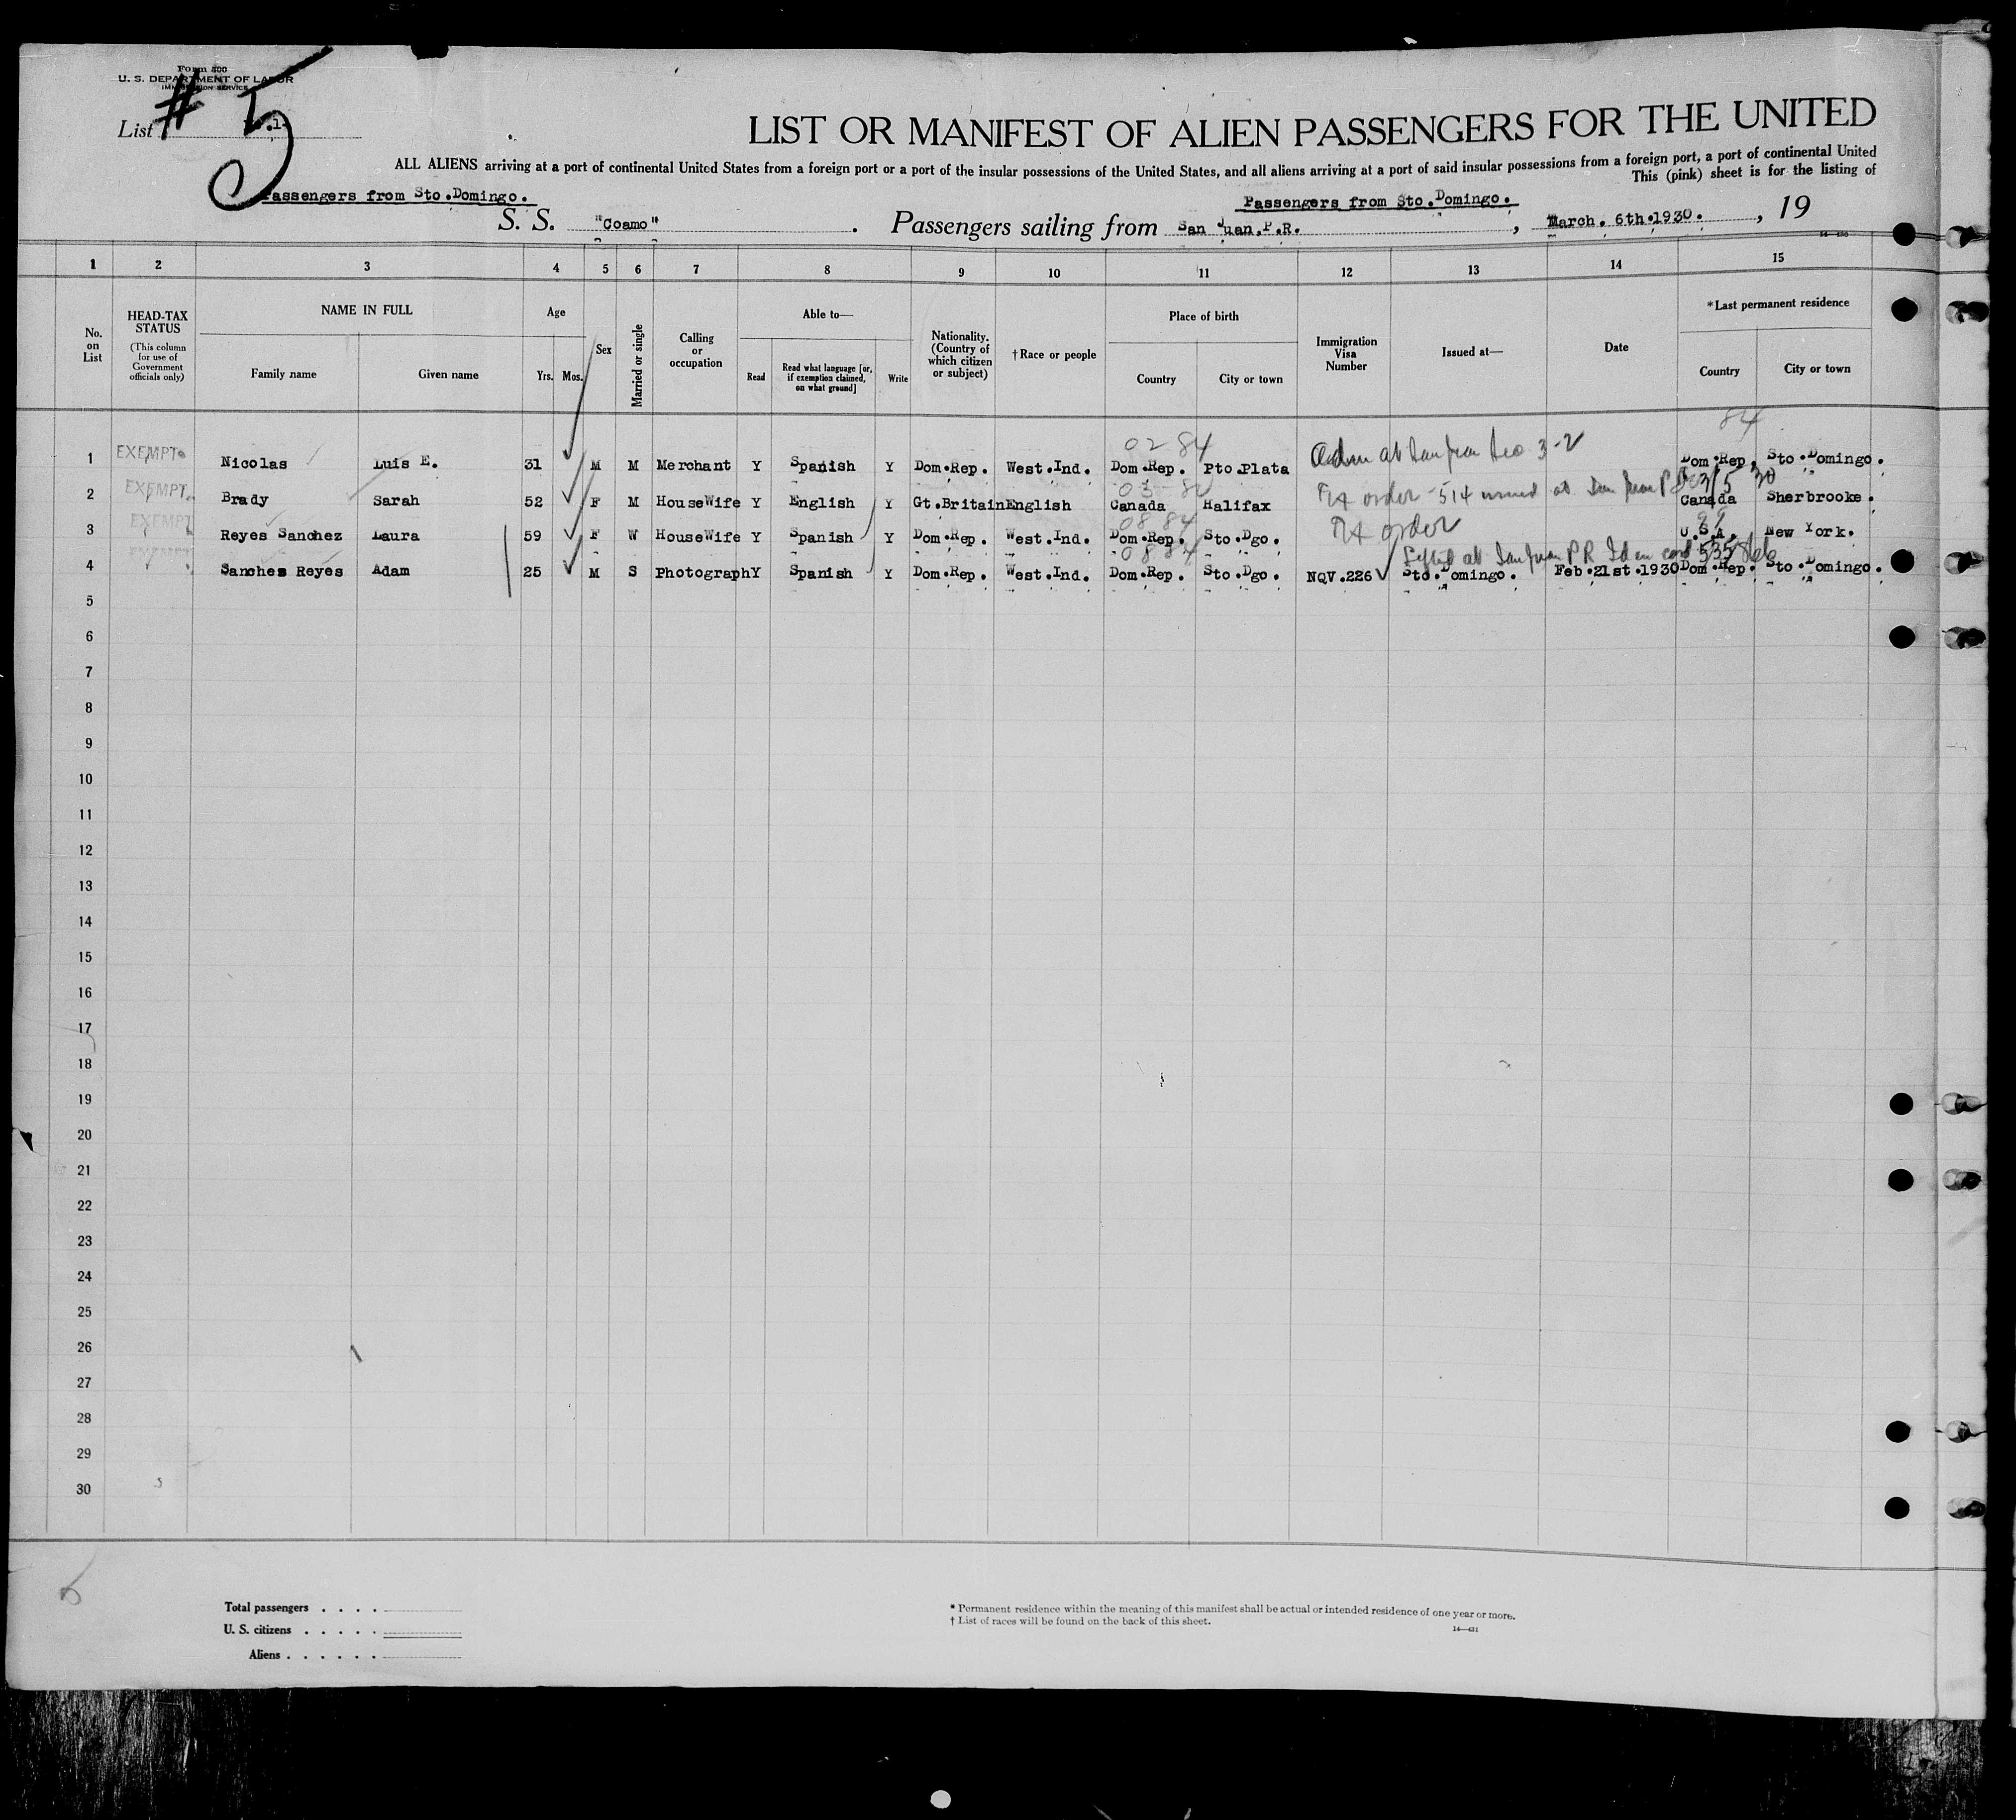 Form 500
U. S. DEPARTMENT OF LABOR
IMMIGRATION SERVICE
# 5
List
LIST OR MANIFEST OF ALIEN PASSENGERS FOR THE UNITED
ALL ALIENS arriving at a port of continental United States from a foreign port or a port of the insular possessions of the United States, and all aliens arriving at a port of said insular possessions from a foreign port, a port of continental United
This (pink) sheet is for the listing of
Passengers from Sto.Domingo. Passengers from Sto.Domingo.
S. S. "Coamo". Passengers sailing from San Juan,P.R., March. 6th.1930., 19
1 2 3 4 5 6 7 8 9 10 11 12 13 14 15
No. on List
HEAD-TAX STATUS
(This column for use of Government officials only)
NAME IN FULL
Family name Given name
Age
Yrs. Mos.
Sex
Married or single
Calling or occupation
Able to—
Read
Read what language [or, if exemption claimed, on what ground]
Write
Nationality. (Country of which citizen or subject)
†Race or people
Place of birth
Country City or town
Immigration Visa Number
Issued at—
Date
*Last permanent residence
Country City or town
02 84 84
1 EXEMPT Nicolas Luis E. 31 M M Merchant Y Spanish Y Dom.Rep. West.Ind. Dom.Rep. Pto.Plata Adm at San Juan 3-2 Dom.Rep. Sto.Domingo.
2 EXEMPT Brady Sarah 52 F M HouseWife Y English Y Gt.Britain English Canada Halifax order 514 issued at San Juan P R 3/5 30 Canada Sherbrooke.
08 84 99
3 EXEMPT Reyes Sanchez Laura 59 F W HouseWife Y Spanish Y Dom.Rep. West.Ind. Dom.Rep. Sto.Dgo. order U.S.A. New York.
08 84 Lifted at San Juan P R Iden card 535
4 EXEMPT Sanches Reyes Adam 25 M S Photograph Y Spanish Y Dom.Rep. West.Ind. Dom.Rep. Sto.Dgo. NQV.226 Sto.Domingo. Feb.21st.1930 Dom.Rep. Sto.Domingo.
5
6
7
8
9
10
11
12
13
14
15
16
17
18
19
20
21
22
23
24
25
26
27
28
29
30
Total passengers . . . .
U. S. citizens . . . . .
Aliens . . . . . .
* Permanent residence within the meaning of this manifest shall be actual or intended residence of one year or more.
† List of races will be found on the back of this sheet.
14—431